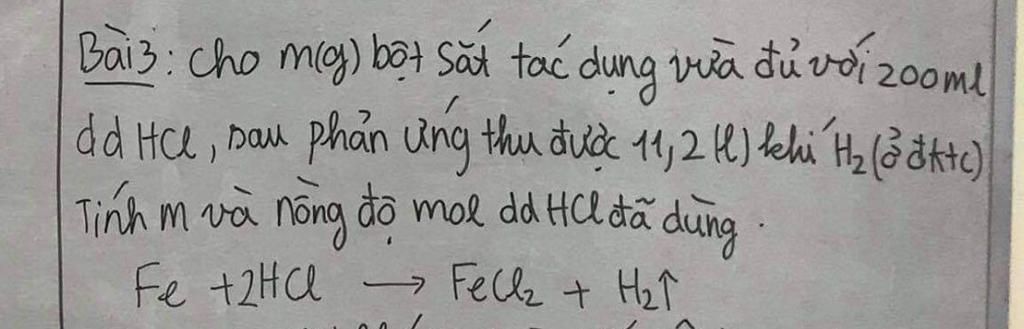 Bài 3: Cho m(g) bột sắt tác dụng vừa đủ với 200ml
dd HCl, sau phản ứng thu được 11,2 (l) khí H₂ (ở đktc)
Tính m và nồng độ mol dd HCl đã dùng.
Fe + 2HCl → FeCl₂ + H₂↑